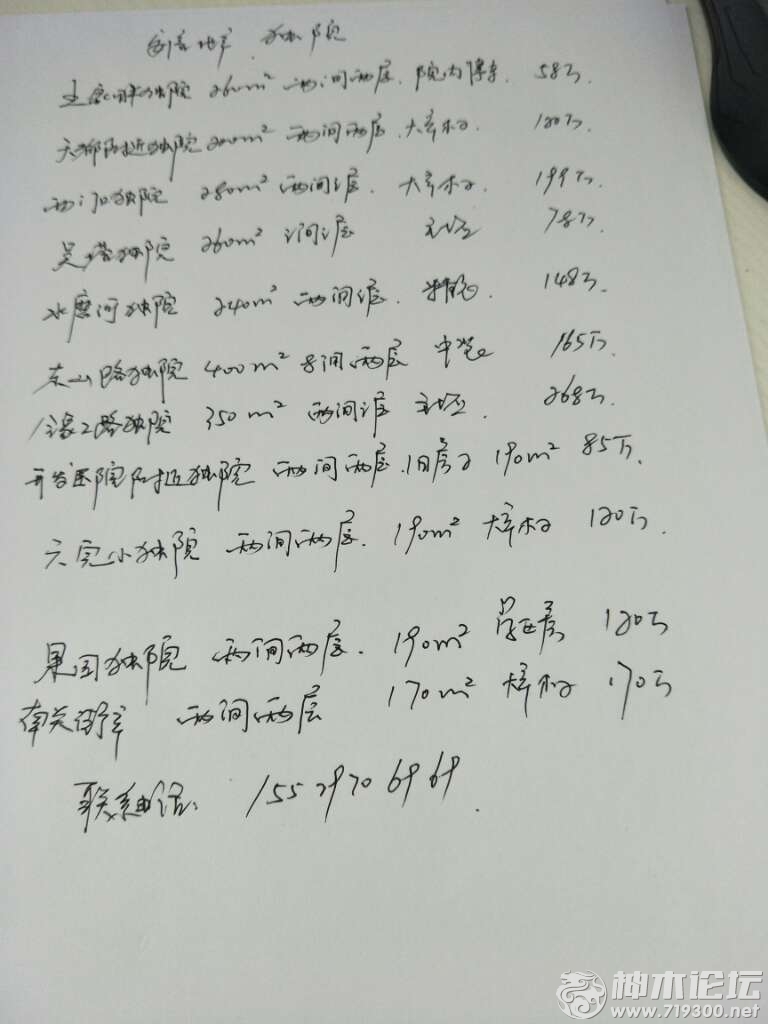 独院
独院 260m² 两间两层. 院内停车. 58万.
天都附近独院 200m² 两间两层. 大产权. 120万.
西门口独院 280m² 两间三层. 大产权. 199万.
吴塔独院 260m² 三间三层 78万
水磨河独院 240m² 两间三层. 148万.
东山路独院 400m² 8间两层 中介 165万.
350m² 两间三层 268万.
开发医院附近独院 两间两层. 旧房子 190m² 85万.
六完小独院 两间两层. 190m² 大产权 120万.
果园独院 两间两层. 190m² 120万
南关 两间两层 170m² 大产权 170万
联系电话: 155 2970 6969.
神木论坛
www.719300.net